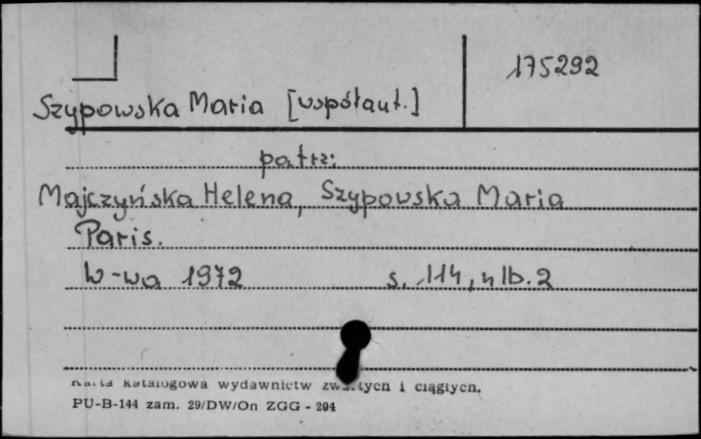 175292
Szypowska Maria [współaut.]
patrz:
Majczyńska Helena, Szypowska Maria
Paris.
W-wa 1972 s. 114, nlb. 2
Karta katalogowa wydawnictw zwartych i ciągłych.
PU-B-144 zam. 29/DW/On ZGG - 204